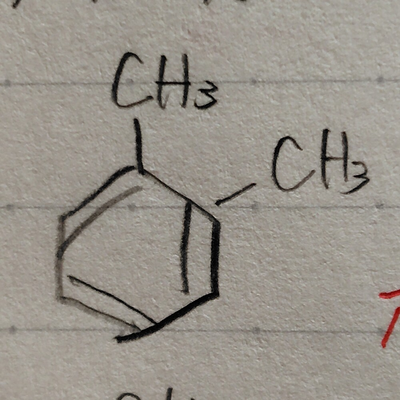 CH3
CH3